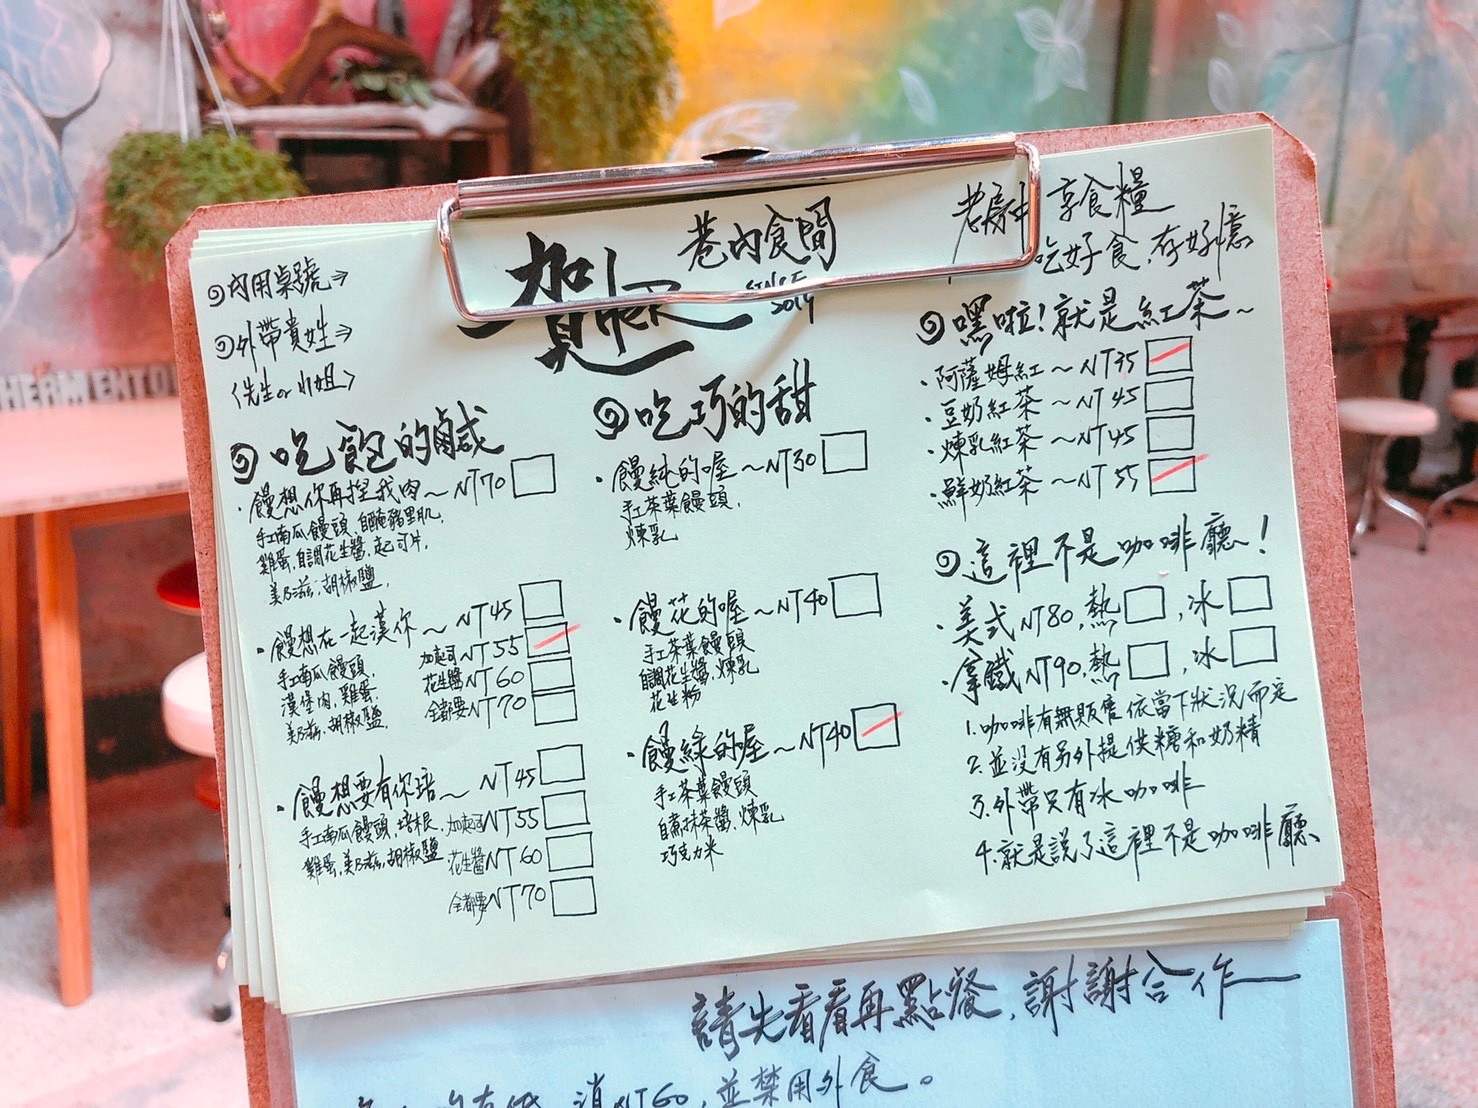 內用桌號⇒
外帶貴姓⇒
(先生or小姐)
賀
巷內食間
SINCE
2019
老房中 享食糧
吃好食,存好憶
吃飽的鹹
·饅想你再捏我肉~NT70
手工南瓜饅頭、自醃豬里肌,
雞蛋,自調花生醬,起司片,
美乃滋,胡椒鹽,
·饅想在一起漢你~NT45
手工南瓜饅頭, 加起司NT55
漢堡肉,雞蛋, 花生醬NT60
美乃滋,胡椒鹽, 全都要NT70
·饅想要有你培~NT45
手工南瓜饅頭,培根, 加起司NT55
雞蛋,美乃滋,胡椒鹽 花生醬NT60
全都要NT70
吃巧的甜
·饅純的喔~NT30
手工茶葉饅頭,
煉乳
·饅花的喔~NT40
手工茶葉饅頭
自調花生醬,煉乳
花生粉
·饅綠的喔~NT40
手工茶葉饅頭
自煮抹茶醬,煉乳
巧克力米
嘿啦!就是紅茶~
·阿薩姆紅~NT35
·豆奶紅茶~NT45
·煉乳紅茶~NT45
·鮮奶紅茶~NT55
這裡不是咖啡廳!
·美式NT80,熱 ,冰
·拿鐵NT90,熱 ,冰
1.咖啡有無販售依當下狀況而定
2.並沒有另外提供糖和奶精
3.外帶只有冰咖啡
4.就是說了這裡不是咖啡廳
請先看看再點餐,謝謝合作~
消NT60,並禁用外食。
THERMENTO